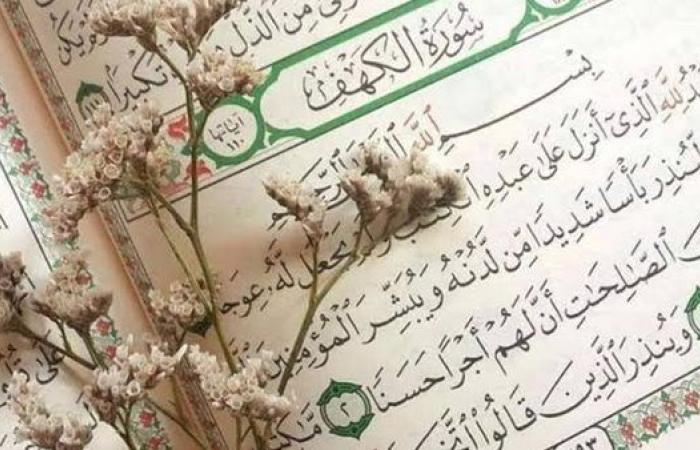 وَلِيٌّ مِّنَ ٱلذُّلِّ
تَكْبِيرًا ١١١
سُورَةُ الكَهْفِ
آيَاتُهَا ١١٠
بِسْمِ ٱللَّهِ ٱلرَّحْمَٰنِ ٱلرَّحِيمِ
لِلَّهِ ٱلَّذِىٓ أَنزَلَ عَلَىٰ عَبْدِهِ ٱلْكِتَٰبَ وَلَمْ يَجْعَل لَّهُۥ عِوَجَا
لِّيُنذِرَ بَأْسًا شَدِيدًا مِّن لَّدُنْهُ وَيُبَشِّرَ ٱلْمُؤْمِنِينَ
ٱلصَّٰلِحَٰتِ أَنَّ لَهُمْ أَجْرًا حَسَنًا ٢ مَّٰكِثِينَ
وَيُنذِرَ ٱلَّذِينَ قَالُوا۟ ٱتَّخَذَ